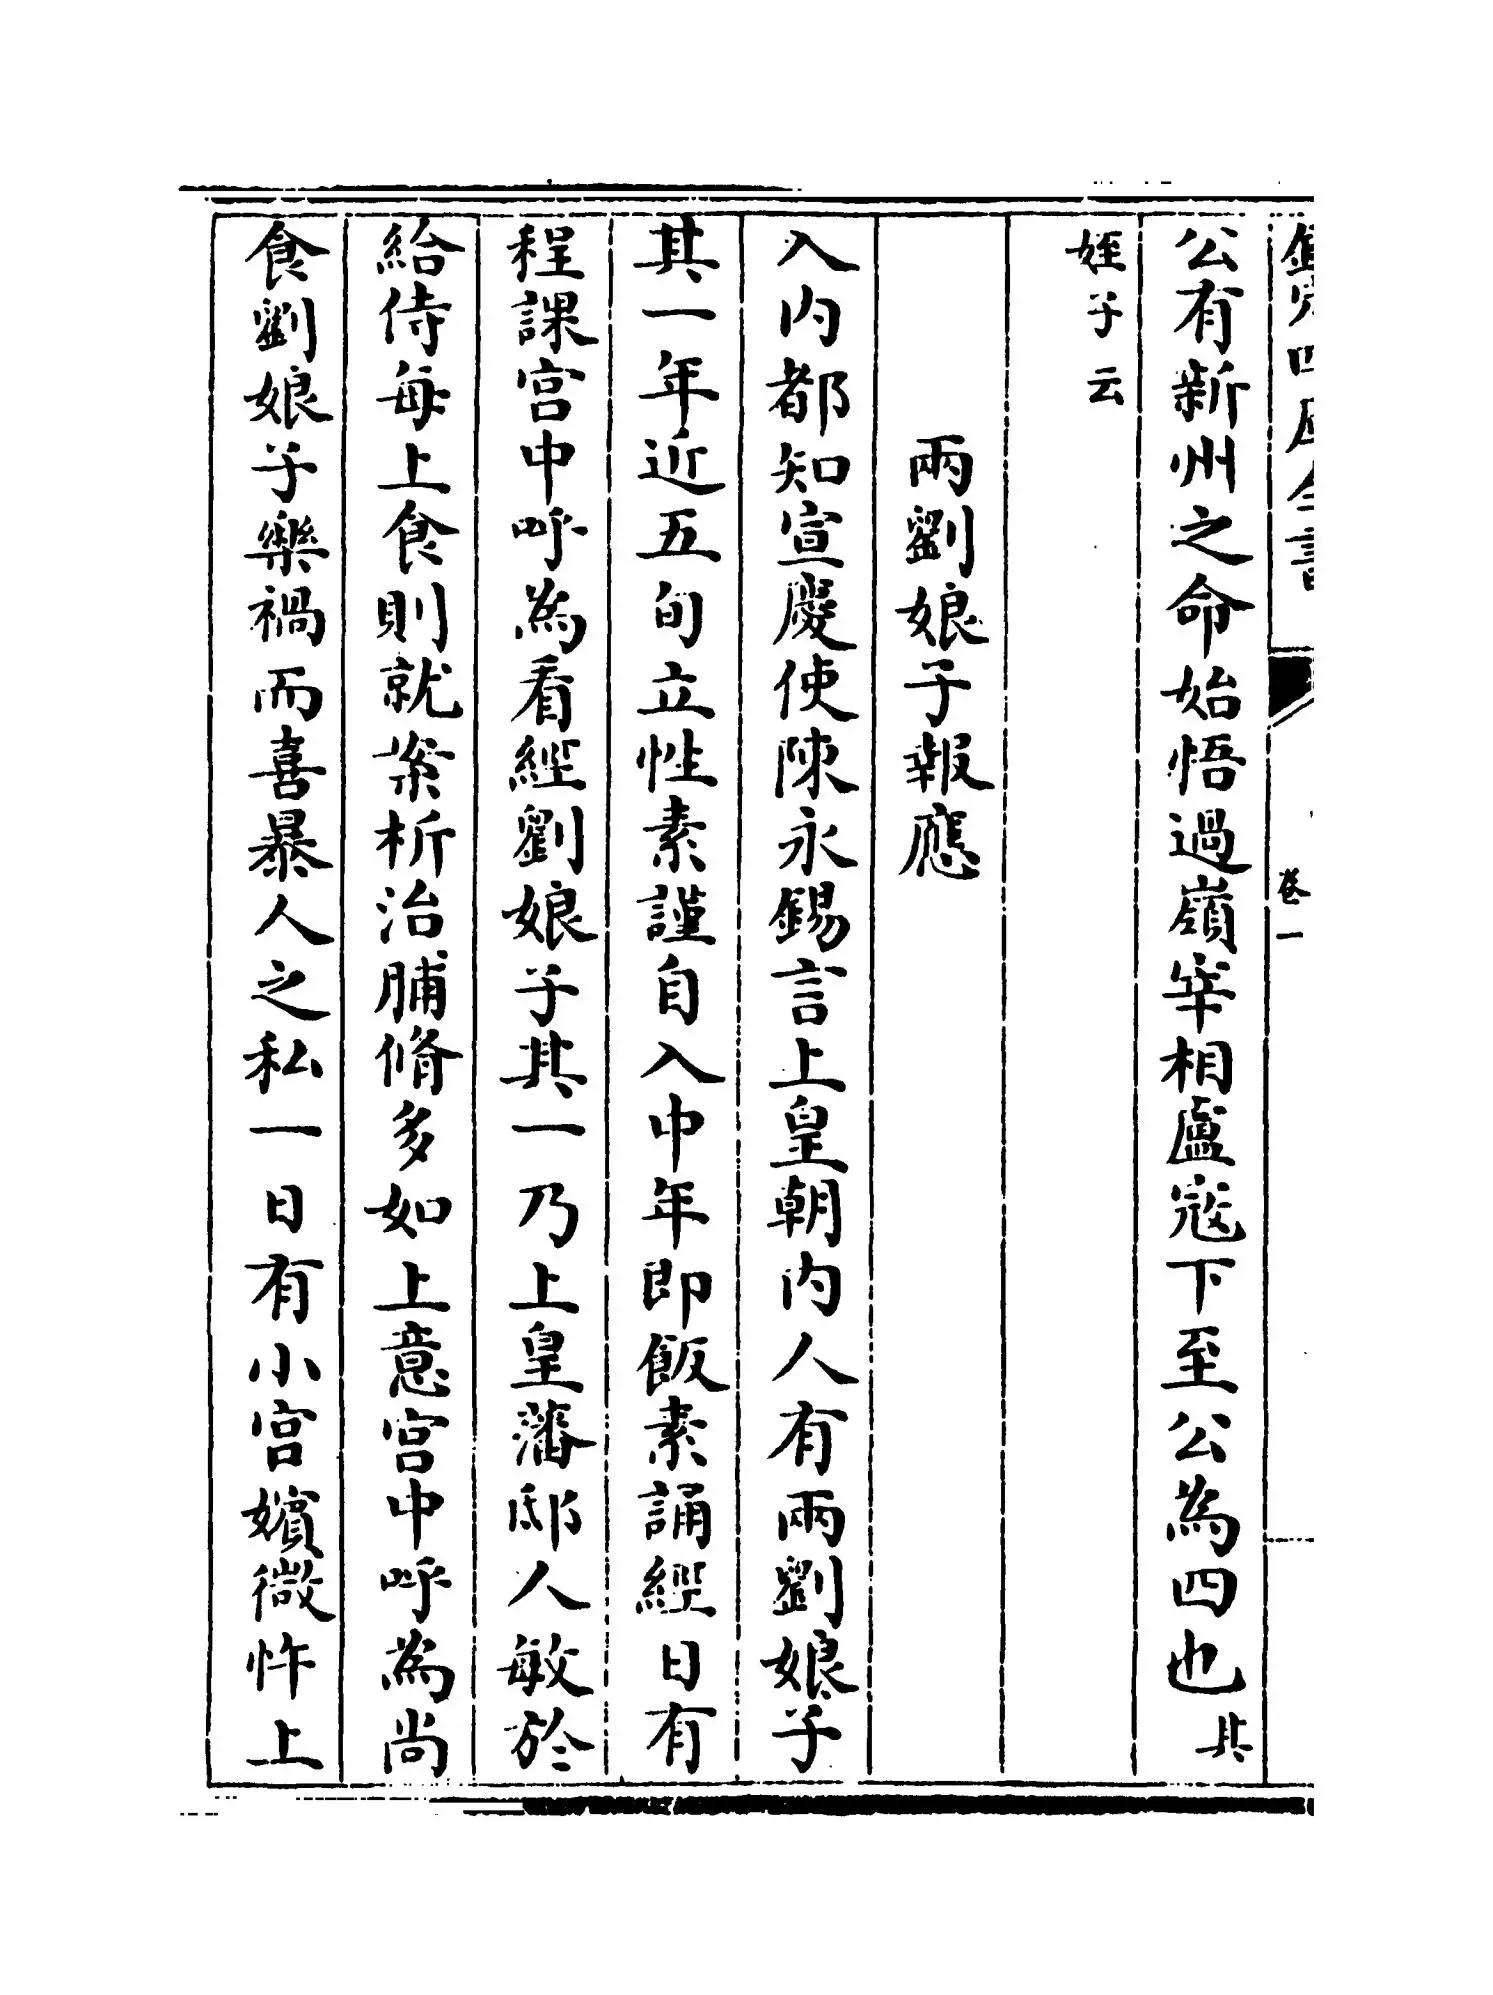 欽定四庫全書
卷一
公有新州之命始悟過嶺宰相盧寇下至公為四也其
姪子云
兩劉娘子報應
入内都知宣慶使陳永錫言上皇朝内人有兩劉娘子
其一年近五旬立性素謹自入中年即飯素誦經日有
程課宫中呼為看經劉娘子其一乃上皇藩邸人敏於
給侍每上食則就案析治脯脩多如上意宫中呼為尚
食劉娘子樂禍而喜暴人之私一日有小宫嬪微忤上